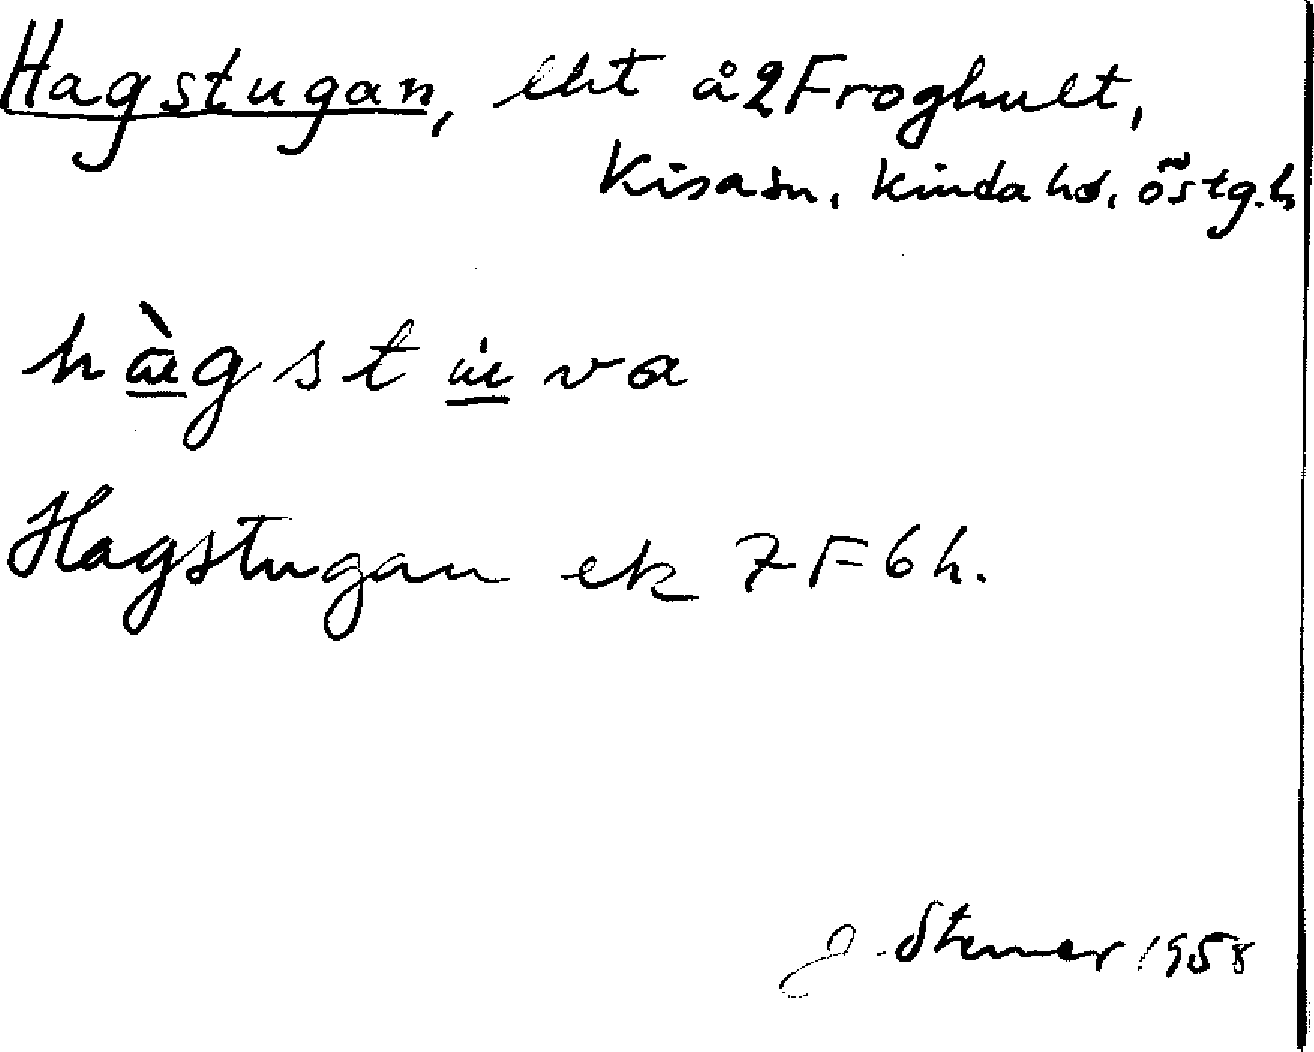 Hagstugan, lht å 2 Froghult,
Kisa sn, Kinda hd, Östg.l.
Hagstugan ek 7F6h.
J. 1958